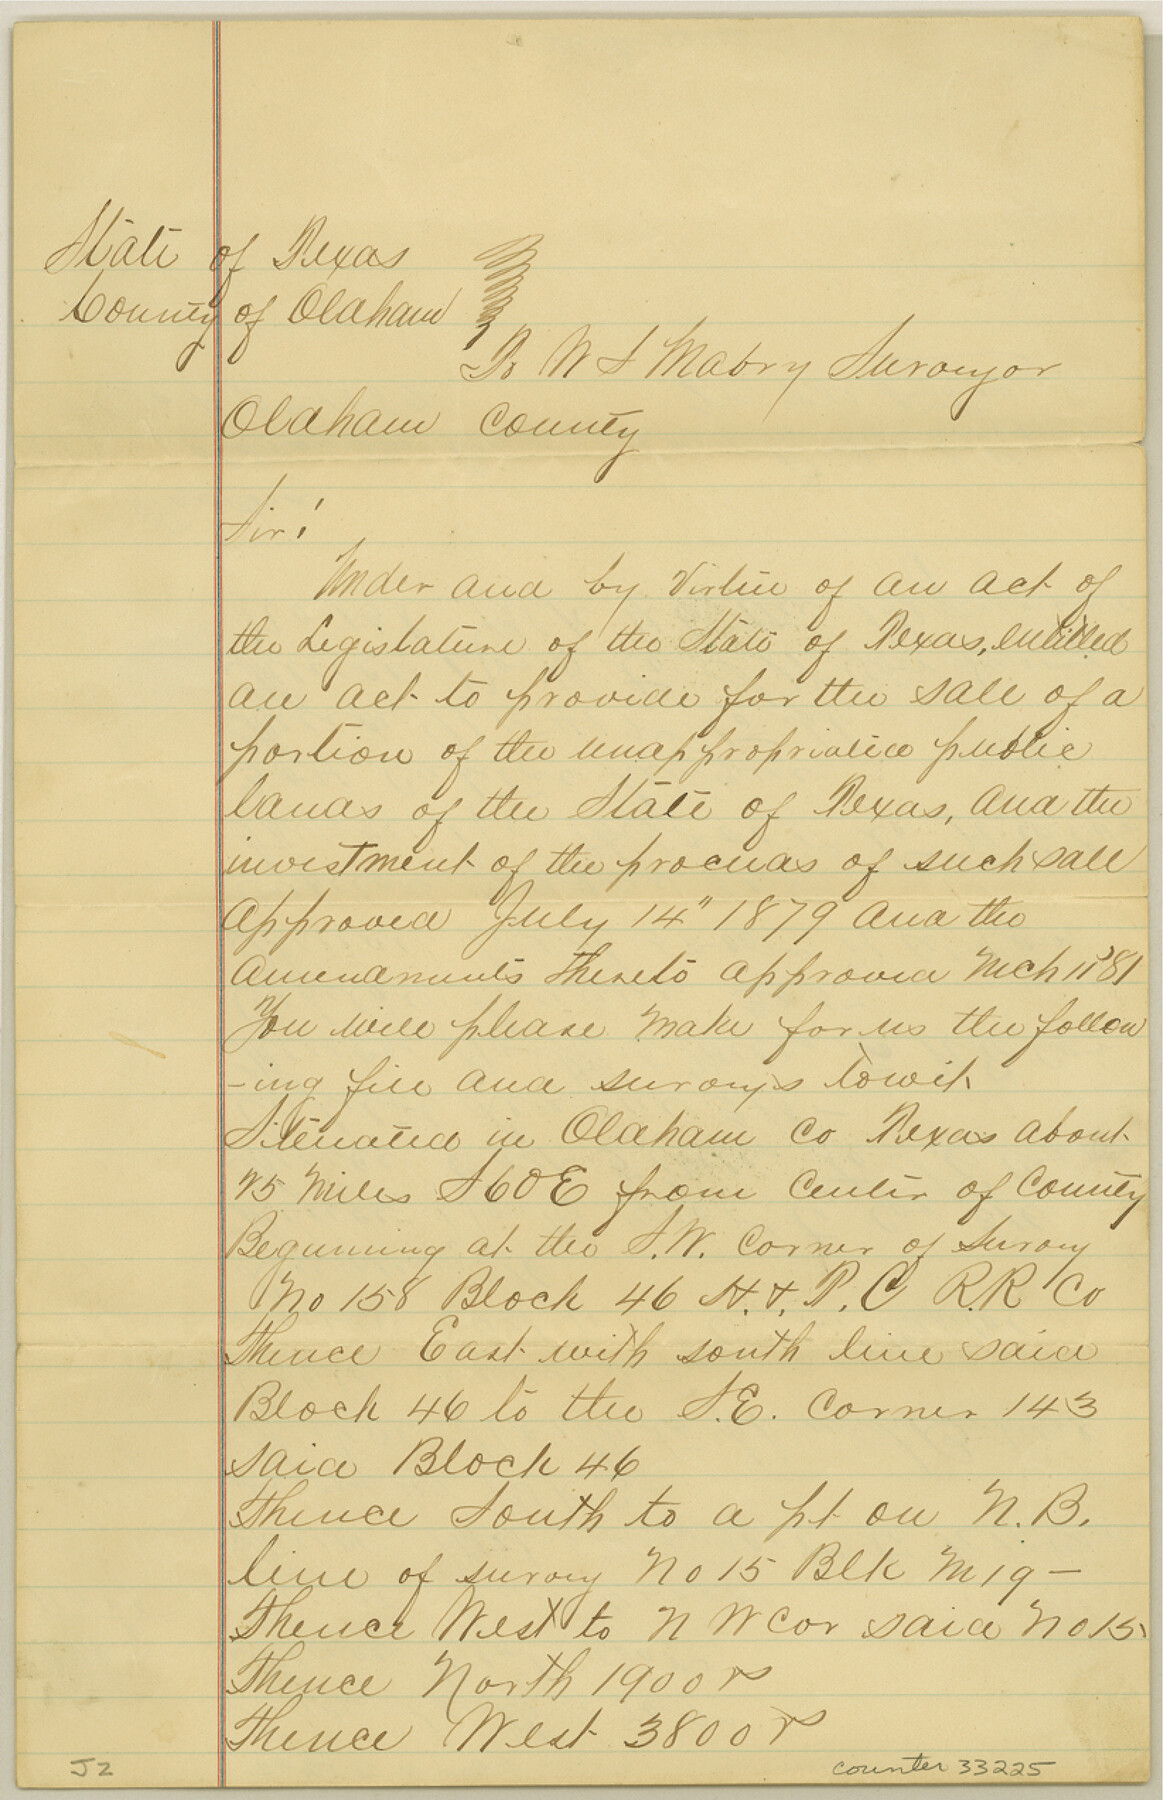 State of Texas
County of Oldham
To W S Mabry Surveyor
Oldham County
Sir!
Under and by virtue of an act of
the Legislature of the State of Texas, entitled
an act to provide for the sale of a
portion of the unappropriated public
lands of the State of Texas, and the
investment of the proceeds of such sale
approved July 14" 1879 and the
amendments thereto approved Mch 11" 81
You will please make for us the follow
-ing file and surveys towit
Situated in Oldham Co Texas about
25 miles S60E from Center of County
Beginning at the S.W. Corner of Survey
No 158 Block 46 H. & T. C R.R Co
Thence East with south line said
Block 46 to the S.E. Corner 143
said Block 46
Thence South to a pt on N. B.
line of survey No 15 Blk M 19 –
Thence West to N W Cor said No 15
Thence North 1900 vs
Thence West 3800 vs
J2
counter 33225